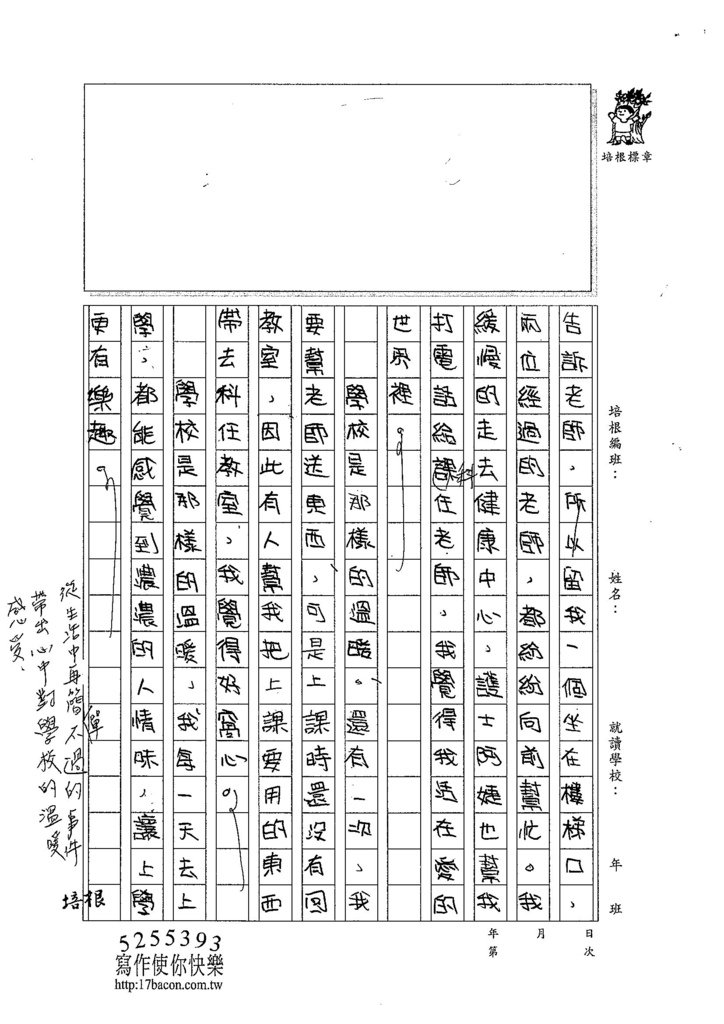 培根標章
培根編班：
姓名：
就讀學校：
年
班
告訴老師，所以留我一個坐在樓梯口，
兩位經過的老師，都紛紛向前幫忙。我
緩慢的走去健康中心，護士阿姨也幫我
打電話給課任老師，我覺得我活在愛的
科
世界裡。
學校是那樣的溫暖。還有一次，我
要幫老師送東西，可是上課時還沒有回
教室，因此有人幫我把上課要用的東西
帶去科任教室，我覺得好窩心。
學校是那樣的溫暖，我每一天去上
學，都能感覺到濃濃的人情味，讓上學
更有樂趣。
從生活中再簡單不過的事件
帶出心中對學校的溫暖
感受、
培根
年 月 日
第 次
5255393
寫作使你快樂
http:17bacon.com.tw